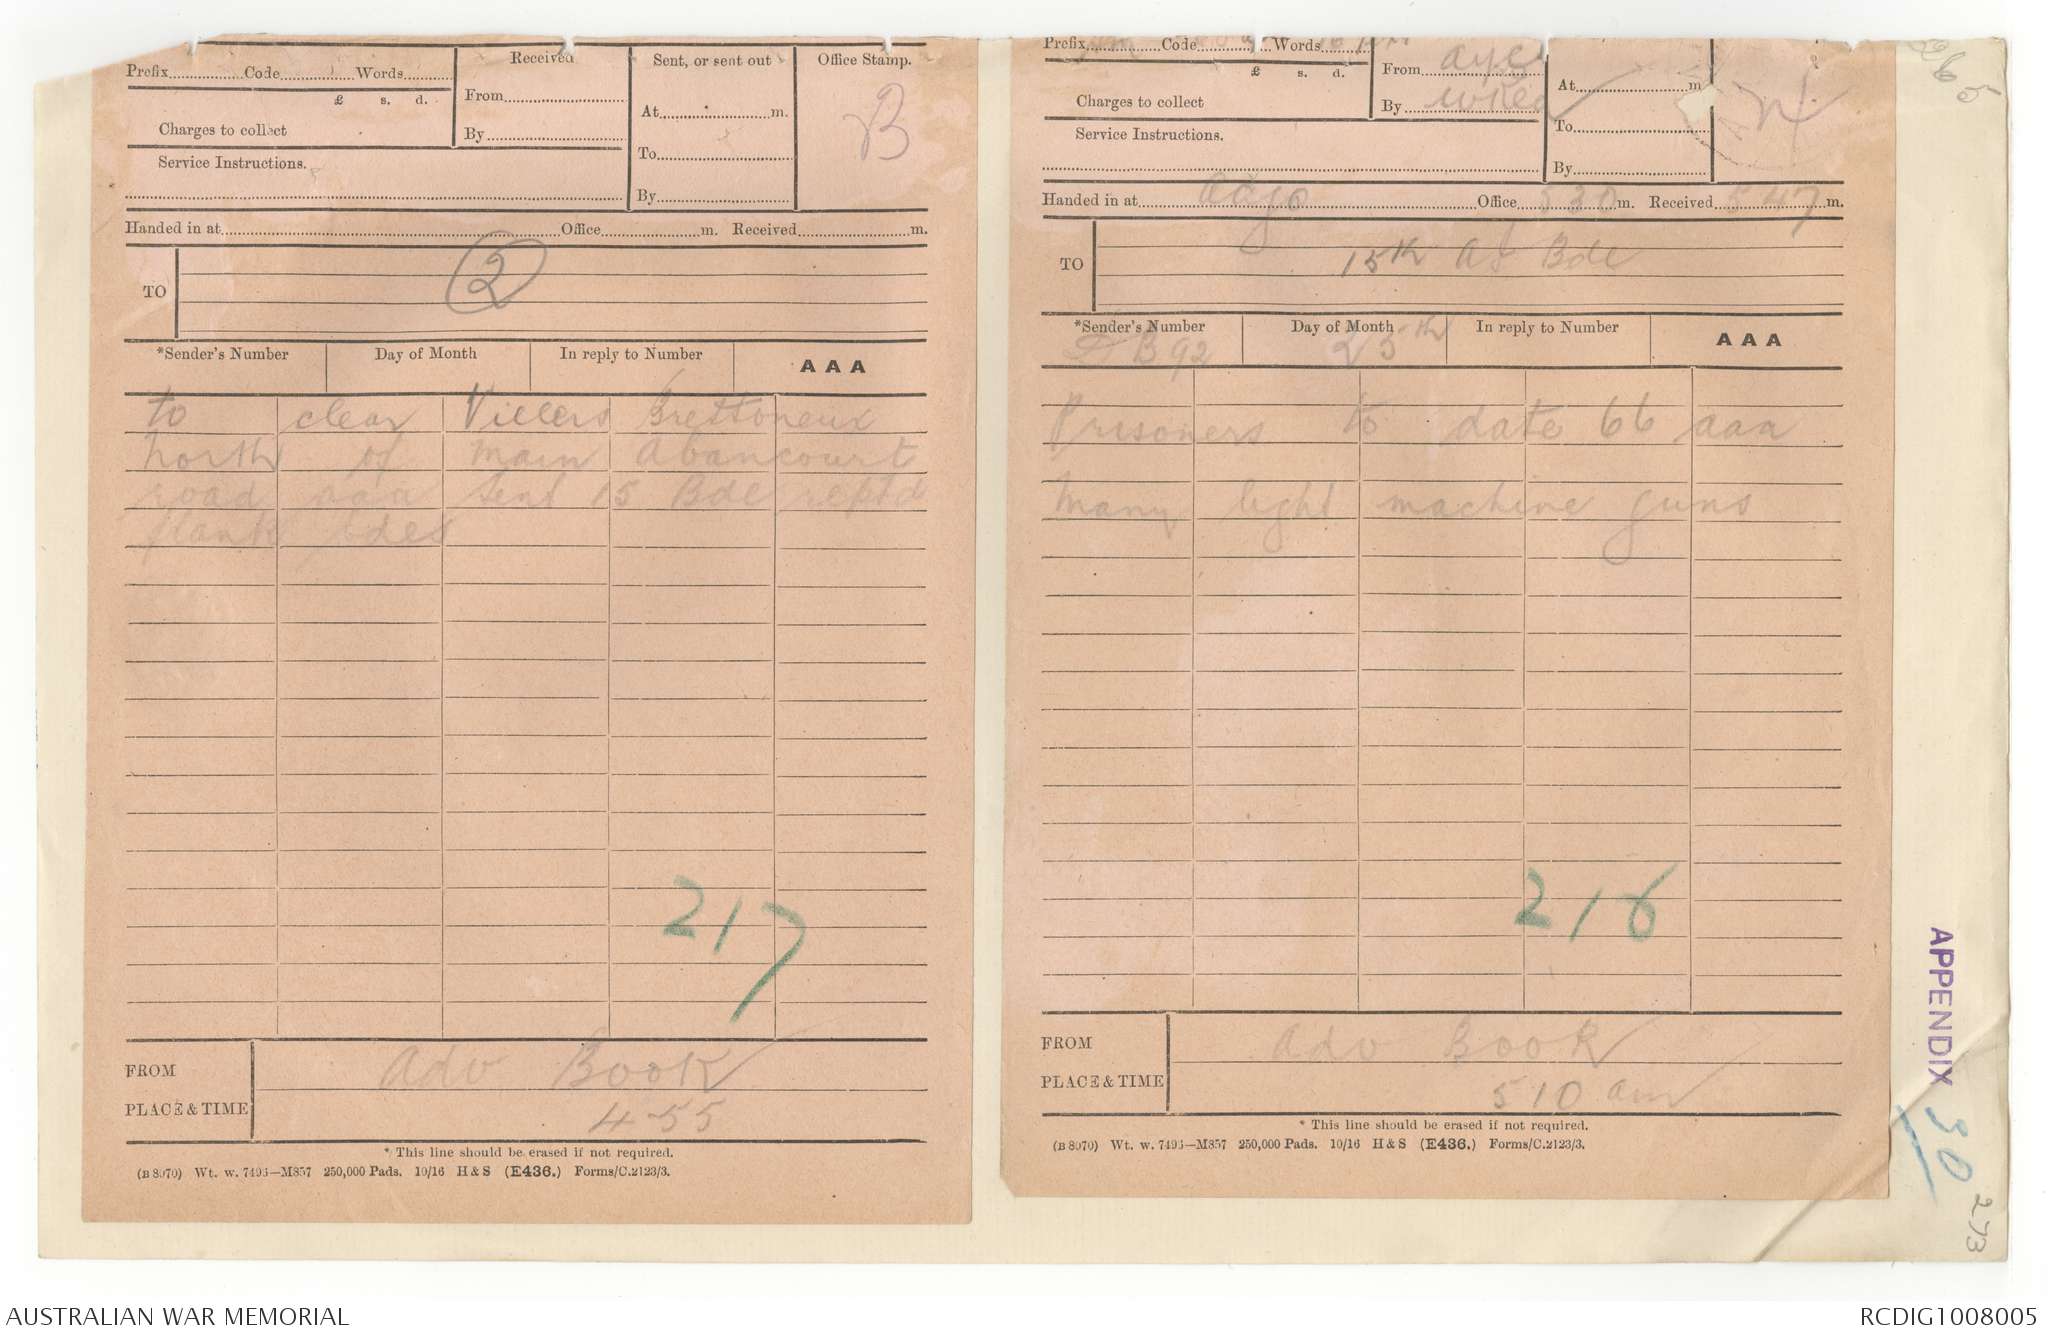 Prefix............Code............Words............
£ s. d.
Charges to collect
Service Instructions.
Received
From............
By............
Sent, or sent out
At............m.
To............
By............
Office Stamp.
B
Handed in at............Office............m. Received............m.
TO
2
*Sender's Number Day of Month In reply to Number AAA
to clear Villers Brettoneux
north of main Abancourt
road aaa sent 15 Bde reptd
flank bdes
217
FROM Adv Book
PLACE & TIME 4-55
* This line should be erased if not required.
(B 8070) Wt. w. 7495—M857 250,000 Pads. 10/16 H & S (E436.) Forms/C.2123/3.
265
Prefix............Code............Words............
£ s. d.
Charges to collect
Service Instructions.
From............
By............
At............m
To............
By............
Handed in at............Office 530 m. Received 547 m.
TO 15th A I Bde
*Sender's Number Day of Month In reply to Number AAA
B 92 25th
Prisoners to date 66 aaa
Many light machine guns
216
FROM Adv Book
PLACE & TIME 510 am
* This line should be erased if not required.
(B 8070) Wt. w. 7495—M857 250,000 Pads. 10/16 H & S (E436.) Forms/C.2123/3.
APPENDIX 30
273
AUSTRALIAN WAR MEMORIAL
RCDIG1008005